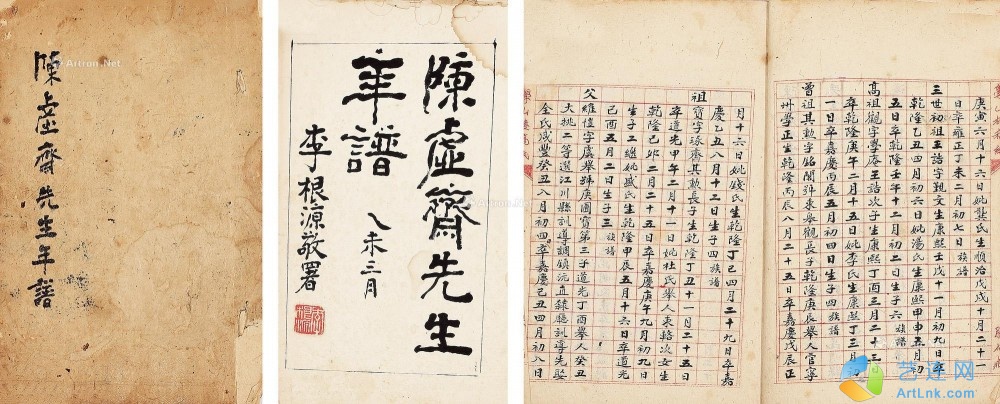 陳虛齋先生年譜
陳虛齋先生
年譜
乙未三月
李根源敬署
庚寅六月十六日姚錢氏生順治戊戌十月二十一
日卒雍正丁未二月初七日 族譜
三世初祖王誥字觐文生康熙壬戌十一月初九日卒
乾隆乙丑四月初六日姚湯氏生康熙甲申五月初
五日卒乾隆壬午十二月初二日生子六 族譜
高祖觀字學庵王誥次子生康熙丁酉三月二十三日
卒乾隆庚午二月十五日姚李氏生康熙丁三月初
一日卒嘉慶丙辰五月初二日生子四 族譜
曾祖其勲字銘閣舜東舉觀長子乾隆庚辰舉人官寧
州學正生乾隆丙辰八月二十五日卒嘉慶戊辰正
月十六日姚錢氏生乾隆丁巳四月二十九日卒嘉
慶乙丑八月十二日生子四 族譜
祖 寶字琢齋其勲長子生乾隆丁丑十一月二十五日
卒道光甲午二月初一日姚杜氏舉人東輅次女生
乾隆己卯二月二十五日卒嘉慶庚午九月初九日
生子二繼姚盛氏生乾隆甲辰五月十六日卒道光
己酉五月二日生子三 族譜
父 維值字虞舉號庚圃寶第三子道光丁酉舉人癸丑
大挑二等選江川縣訓導調鎮沅直隸廳訓導先娶
全氏咸豐癸丑八月初四卒嘉慶己丑四月初八日
Artron.Net
艺连网
ArtLnk.com